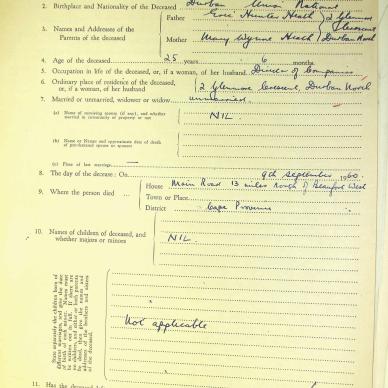 2. Birthplace and Nationality of the Deceased Durban Union National
Father Eric Hunter Heath 2 Glenmore
3. Names and Addresses of the Parents of the deceased Crescent
Mother Mary Wynne Heath Durban North
4. Age of the deceased 25 years 6 months
5. Occupation in life of the deceased, or, if a woman, of her husband Director of Companies
6. Ordinary place of residence of the deceased, or, if a woman, of her husband 2 Glenmore Crescent, Durban North
7. Married or unmarried, widower or widow unmarried
(a) Name of surviving spouse (if any), and whether married in community of property or not NIL
(b) Name or Names and approximate date of death of pre-deceased spouse or spouses
(c) Place of last marriage
8. The day of the decease: On 9th September 1960.
9. Where the person died House Main Road 13 miles North of Beaufort West
Town or Place
District Cape Province
10. Names of children of deceased, and whether majors or minors NIL.
State separately the children born of different marriages, and give the date of birth of each minor.
Not applicable
11. Has the deceased